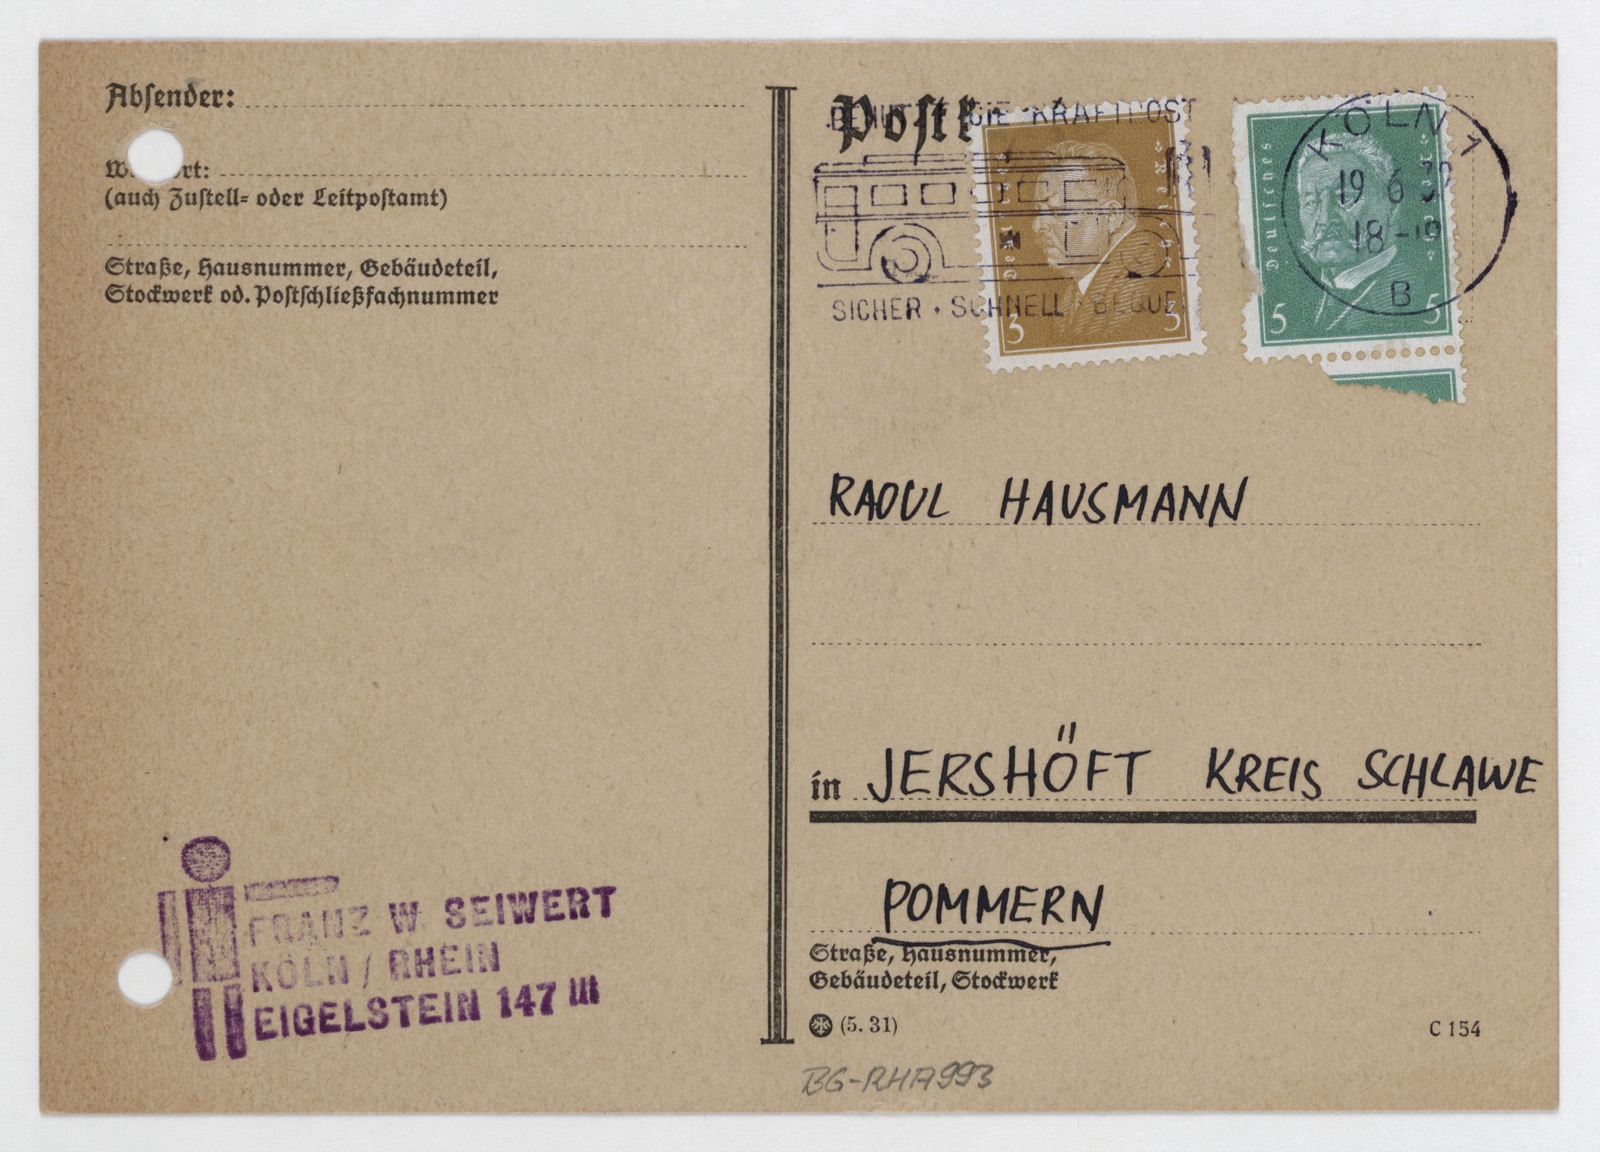 Absender:
(auch Zustell- oder Leitpostamt)
Straße, Hausnummer, Gebäudeteil,
Stockwerk od. Postschließfachnummer
FRANZ W. SEIWERT
KÖLN / RHEIN
EIGELSTEIN 147 III
Postk
DIE KRAFTPOST
SICHER · SCHNELL · BEQUE
Deutsches Reich
3 3
Deutsches Reich
5 5
KÖLN 1
19 6 32
18-19
B
RAOUL HAUSMANN
in JERSHÖFT KREIS SCHLAWE
POMMERN
Straße, Hausnummer,
Gebäudeteil, Stockwerk
(5. 31)
C 154
BG-RHA993